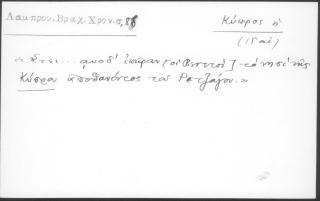 Λαμπρου. Βραχ. Χρον. σ, 85
Κύπρος ἡ
(15 αἰ)
« ἔτει... αυοδ' ἐπῆραν [οἱ Βενετοὶ] τὸ νησὶ τῆς
Κύπρου ἀποθανόντος τοῦ Ρε τζάγου.»